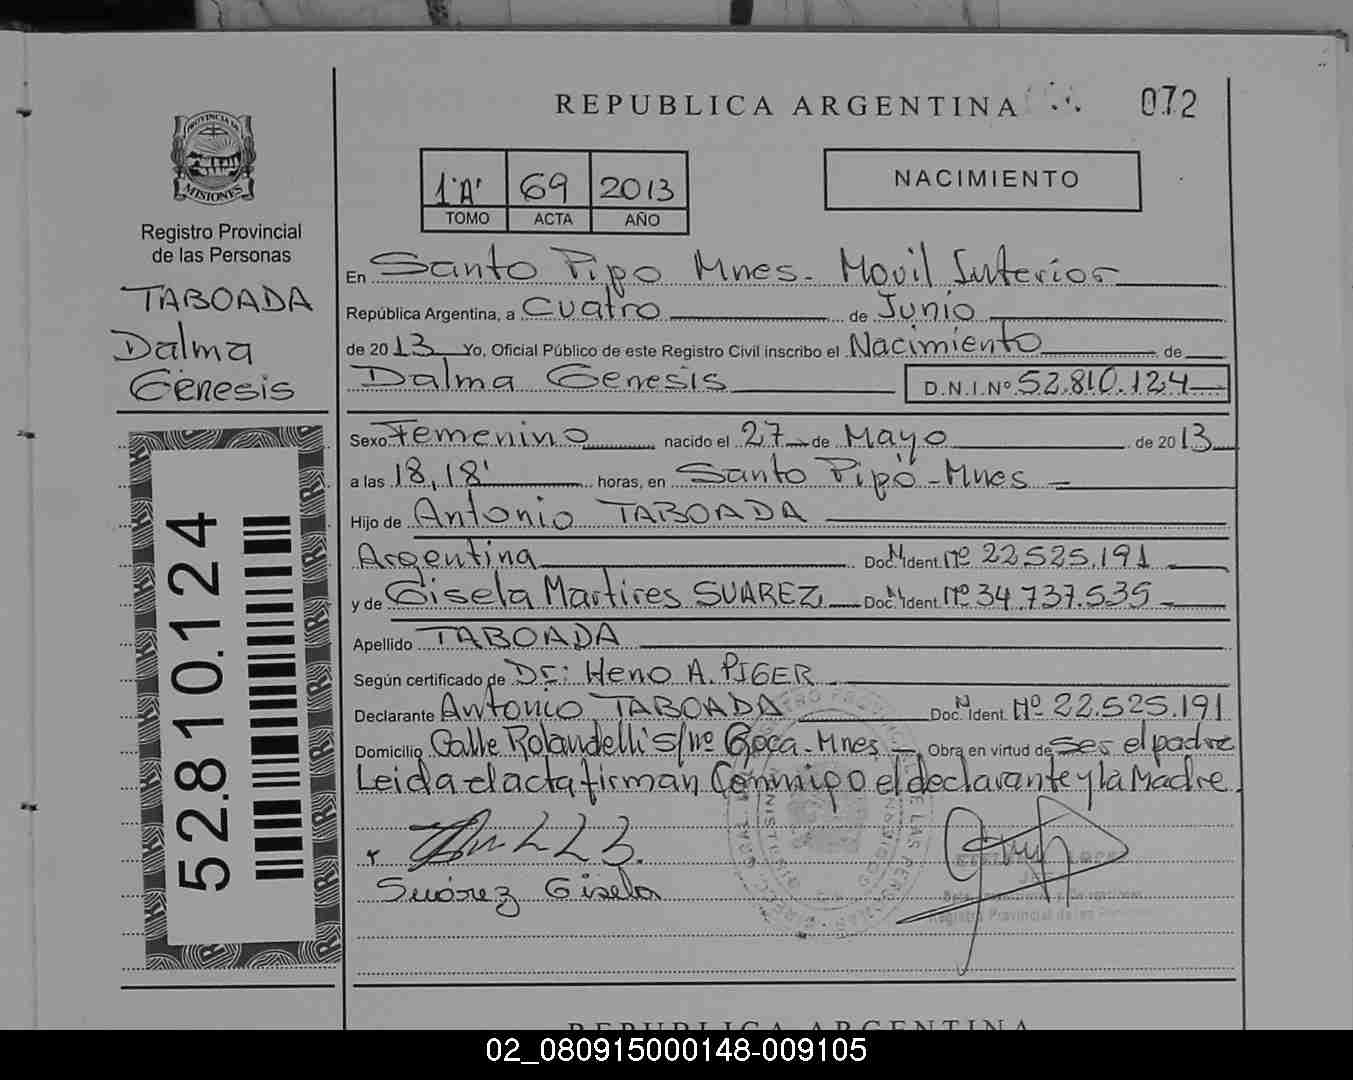 REPUBLICA ARGENTINA
072
PROVINCIA DE
MISIONES
Registro Provincial
de las Personas
TABOADA
Dalma
Génesis
52.810.124
1°"A" 69 2013
TOMO ACTA AÑO
NACIMIENTO
En Santo Pipo Mnes. Movil Interior
República Argentina, a Cuatro de Junio
de 2013 Yo, Oficial Público de este Registro Civil inscribo el Nacimiento de
Dalma Genesis D.N.I.Nº 52.810.124
Sexo Femenino nacido el 27 de Mayo de 2013
a las 18,18' horas, en Santo Pipó - Mnes
Hijo de Antonio TABOADA
Argentina Doc. N. Ident. Nº 22.525.191
y de Gisela Martires SUAREZ Doc. N. Ident. Nº 34.737.535
Apellido TABOADA
Según certificado de Dr: Heno A. PIGER
Declarante Antonio TABOADA Doc. N. Ident. Nº 22.525.191
Domicilio Calle Rolandelli s/nº Roca - Mnes - Obra en virtud de ser el padre
Leida el acta firman Conmigo el declarante y la Madre.
Suárez Gisela
Registro Provincial de las Personas
REPUBLICA ARGENTINA
02_080915000148-009105